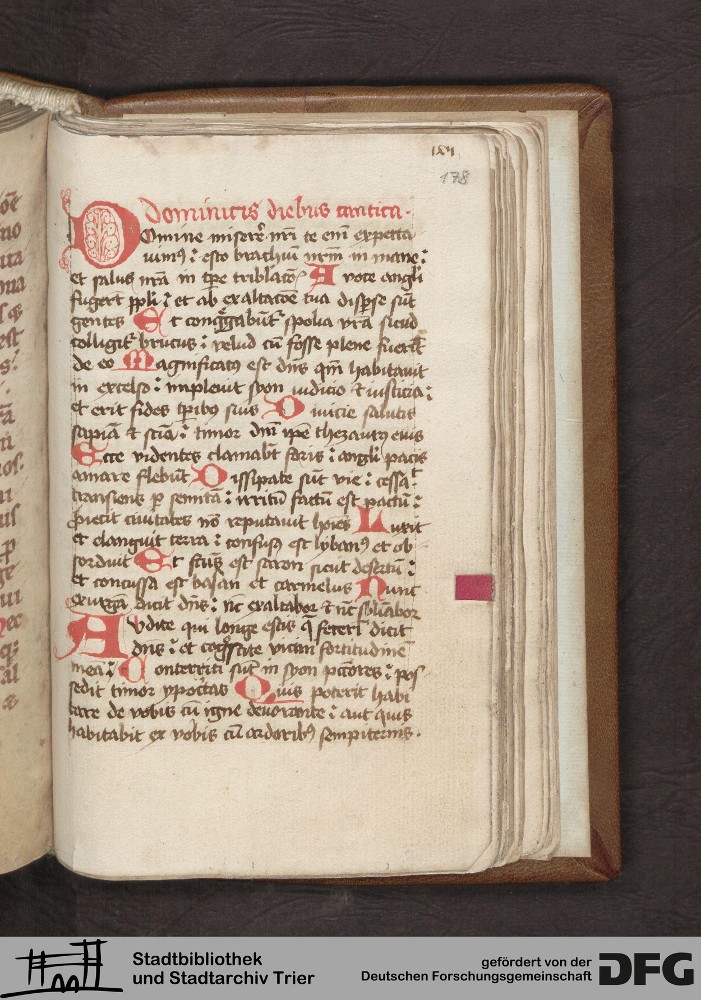 178
Dominicis diebus cantica.
Domine miserẽ nr̃i te em̃ expecta
uimꝰ : esto brachiũ nr̃m in mane :
et salus nr̃a in tp̃e tribłatõıs A voce angli
fugerũt ppli : et ab exaltacõe tua dispse sũt
gentes Et congͣgabũtr spolia vr̃a sicud
colligitr brucus : velud cũ fosse plene fuerĩt
de eo Magnificatꝰ est dns qm̃ habitauit
in excelso : impleuit syon iudicio et iusticia :
et erit fides tp̃ibꝰ tuis Diuicie salutis
sapiẽa et sciẽa : timor dñi ip̃e thezaurꝰ eius
Ecce videntes clamabũt foris : angli pacis
amare flebũt Dissipate sũt vie : cessaᵗ
transiens ꝑ semitã : irritũ factũ est pactũ :
ꝓiecit ciuitates nõ reputauit hoĩes Luxit
et elanguit terra : confusꝰ est lybanꝰ et ob
sorduit Et factus est saron sicut desertũ :
et concussa est basan et carmelus Nunc
exurgã dicit dñs : nc̃ exaltabor et nc̃ subleuabor
Audite qui longe estis q̃ fecerĩ dicit
dñs : et cogͦscite vicini fortitudinẽ
meã : Conterriti sũt in syon pctõres : pos
sedit timor ypocritas Quis poterit habi
tare de vobis cũ igne deuorante : aut quis
habitabit ex vobis cũ ardoribꝰ sempiternis .
Stadtbibliothek
und Stadtarchiv Trier
gefördert von der
Deutschen Forschungsgemeinschaft
DFG